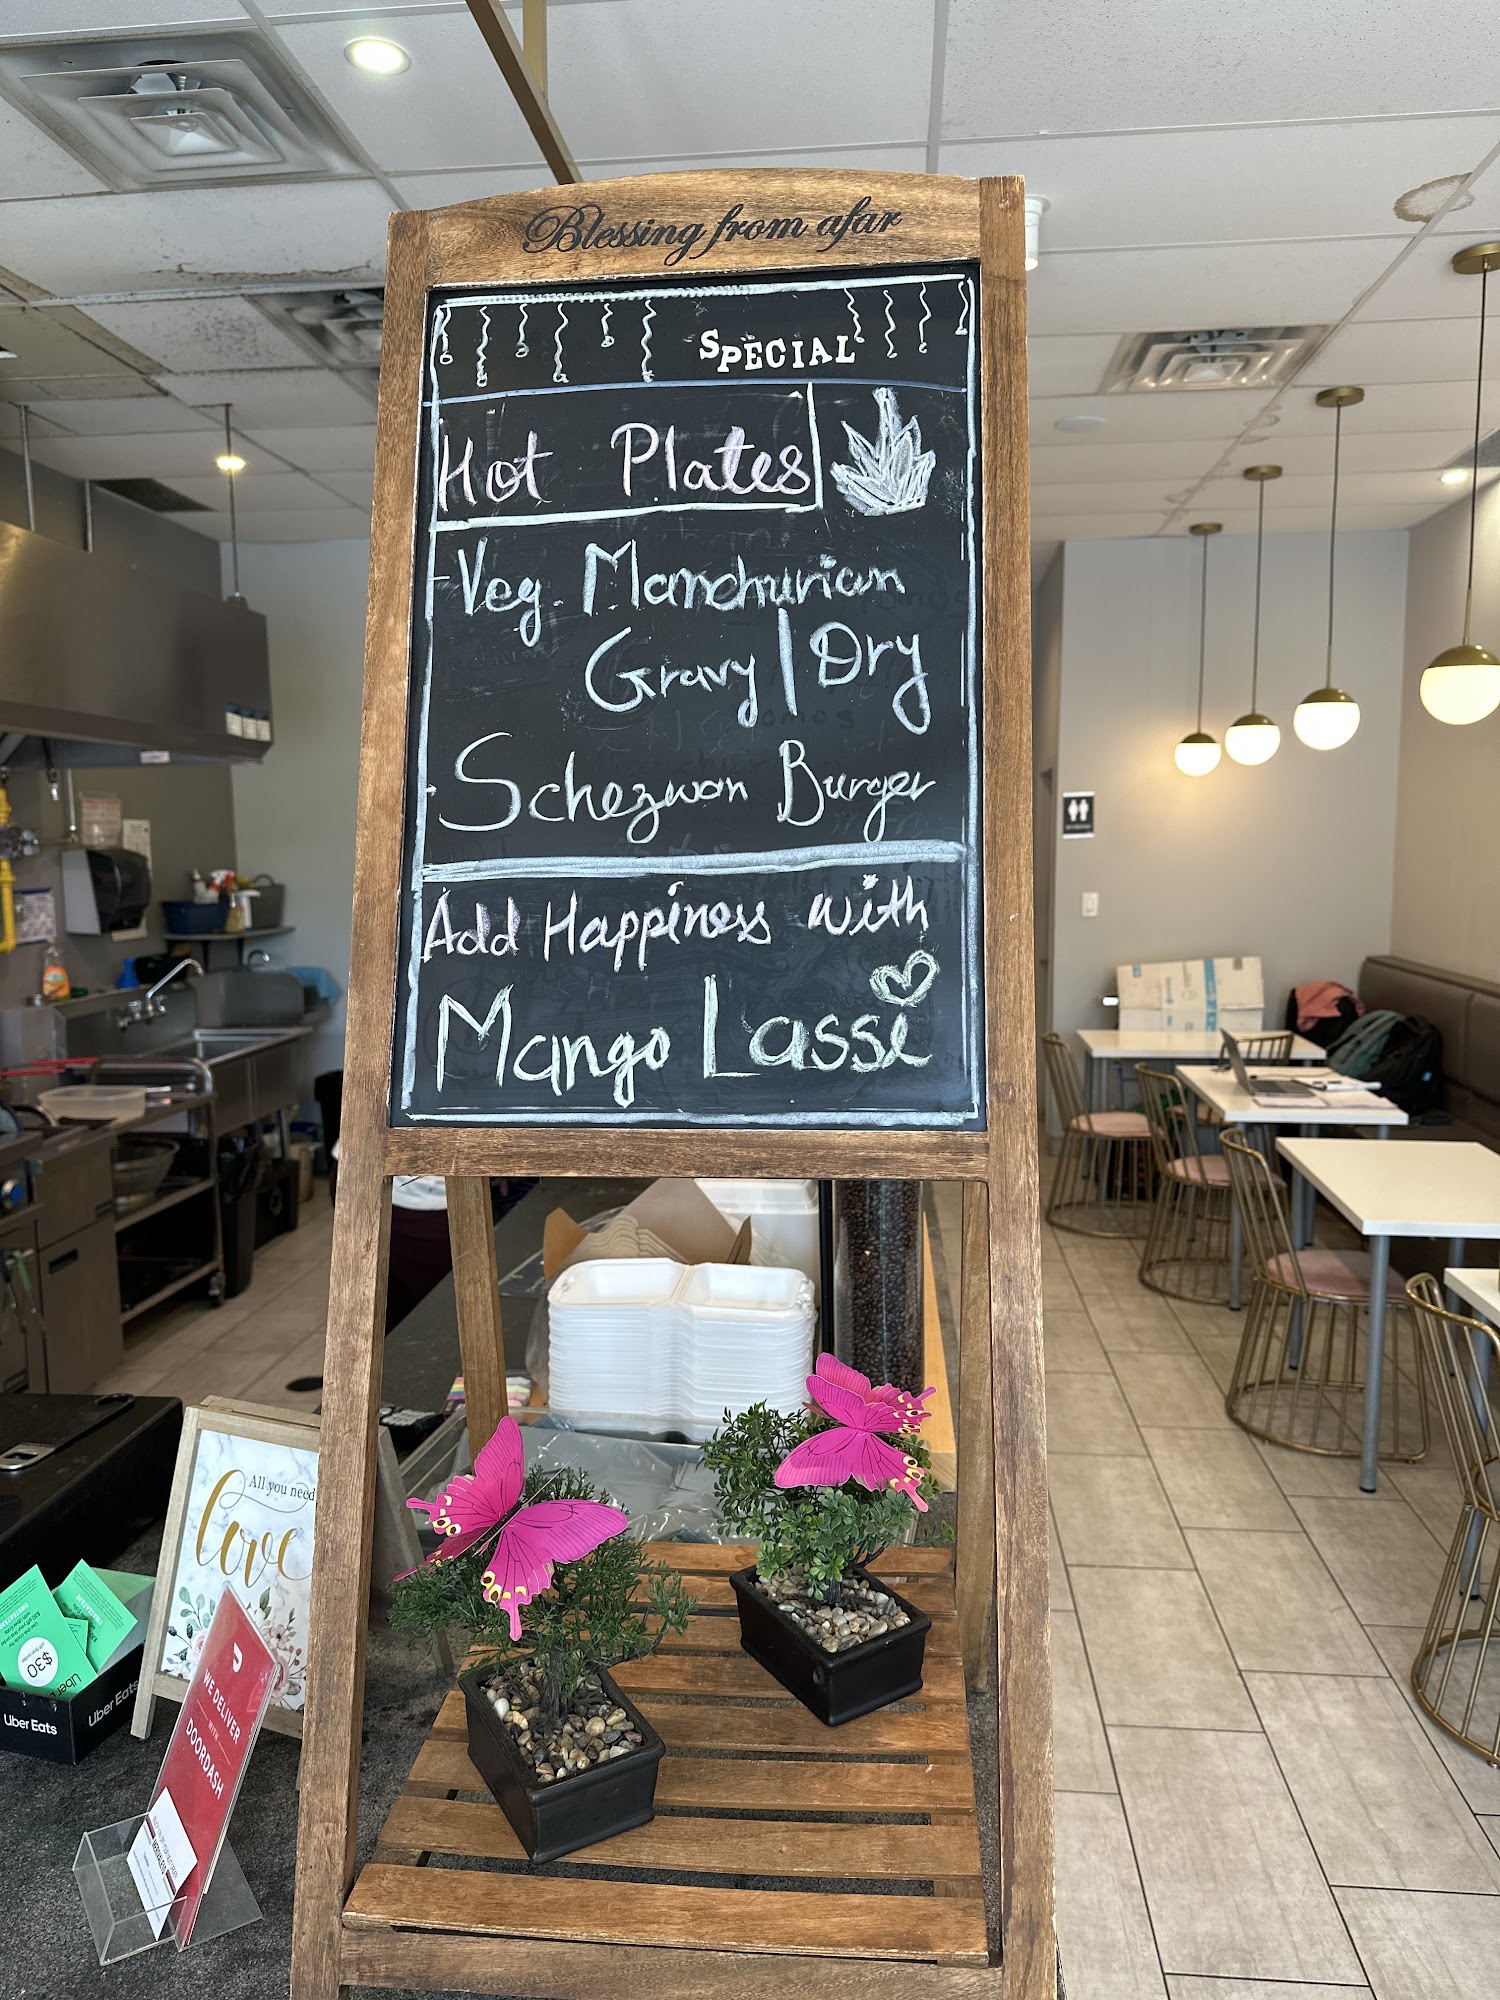 Blessing from afar
SPECIAL
Hot Plates
- Veg. Manchurian
Gravy | Dry
- Schezwon Burger
Add Happiness with
Mango Lassi
All you need
love
WE DELIVER
WITH
DOORDASH
$30
Uber Eats
Uber Eats